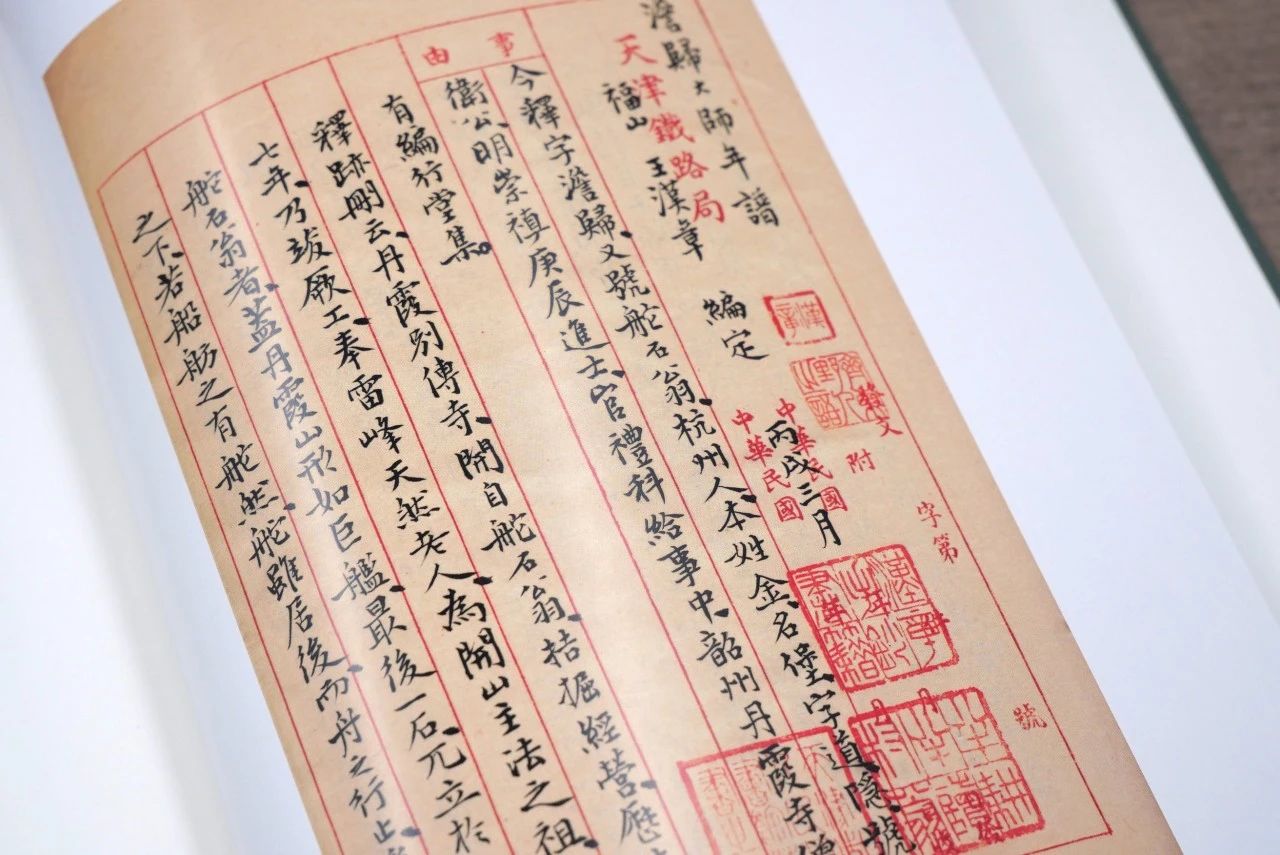 澹歸大師年譜
天津鐵路局
福山 王漢章 編定 丙戌三月
漢章
發文 附 字第 號
中華民國
中華民國
事由
今釋字澹歸、又號舵石翁、杭州人、本姓金、名堡、字道隱、號
衛公、明崇禎庚辰進士、官禮科給事中、韶州丹霞寺僧
有編行堂集。
釋跡刪云、丹霞別傳寺、開自舵石翁、拮据經營、歷
七年、乃竣厥工、奉雷峰天然老人、為開山主法之祖、
舵石翁者、蓋丹霞山形如巨艦、最後一石、兀立於
之下、若船舫之有舵然、舵雖居後、而舟之行止、